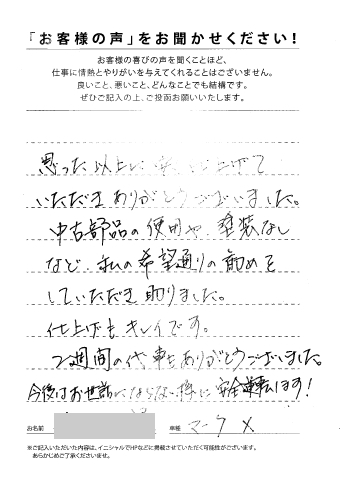 「お客様の声」をお聞かせください！
お客様の喜びの声を聞くことほど、
仕事に情熱とやりがいを与えてくれることはございません。
良いこと、悪いこと、どんなことでも結構です。
ぜひご記入の上、ご投函お願いいたします。
思った以上に 上げて
いただきありがとうございました。
中古部品の使用や、塗装なし
など、私の希望通りの勧めを
していただき助りました。
仕上げもキレイです。
2週間の代車もありがとうございました。
今後はお世話にならない様に安全運転します！
お名前 車種 マークX
※ご記入いただいた内容は、イニシャルでHPなどに掲載させていただく可能性がございます。
あらかじめご了承くださいませ。